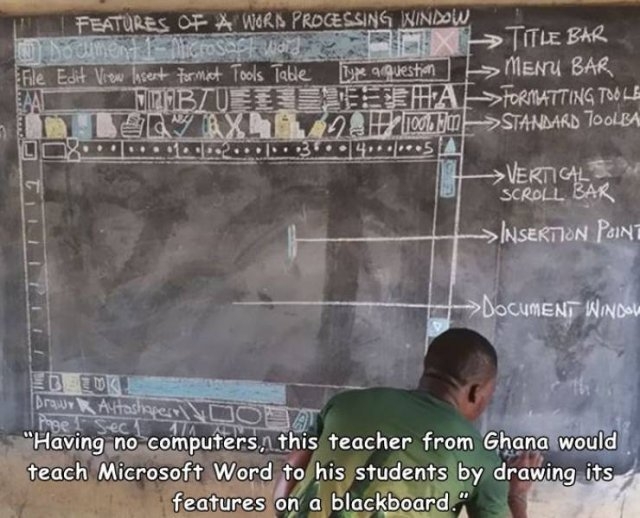 FEATURES OF A WORD PROCESSING WINDOW
Document 1 - Microsoft Word
TITLE BAR
File Edit View Insert Format Tools Table Type a question
MENU BAR
AA B I U A
FORMATTING TOOLB
ABC 100%
STANDARD TOOLBA
1 2 3 4 5
VERTICAL
SCROLL BAR
INSERTION POINT
DOCUMENT WINDOW
Draw Autoshapes
Page 1 Sec 1 1/1
"Having no computers, this teacher from Ghana would
teach Microsoft Word to his students by drawing its
features on a blackboard."